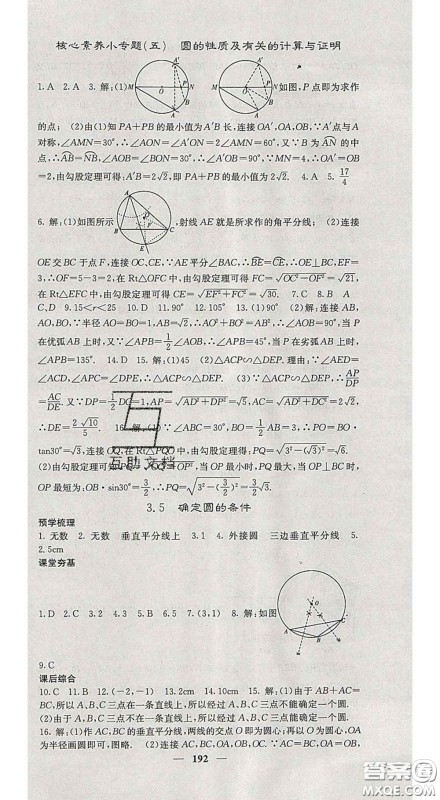 核心素养小专题(五) 圆的性质及有关的计算与证明
1.A 2.A 3.解:(1) 如图,P点即为求作
的点;(2)由(1)知PA+PB的最小值为A′B长,连接OA′,OA,OB,∵A′点与A
对称,∠AMN=30°,∴∠AON=∠A′ON=2∠AMN=60°.又∵B为AN的中
点,∴AB=NB,∴∠AOB=∠BON=30°,∴∠A′OB=90°.∵MN=4,∴OA′=OB=
2,由勾股定理可得:A′B=2√2,即PA+PB的最小值为2√2. 4.A 5.17/4
6.解:(1)如图所示 ,射线AE就是所求作的角平分线; (2)连接
OE交BC于点F,连接OC,CE,∵AE平分∠BAC,∴BE=CE,∴OE⊥BC,EF=
3,∴OF=5-3=2,在Rt△OFC中,由勾股定理可得FC=√OC²-OF²=√21,
在Rt△EFC中,由勾股定理可得CE=√EF²+FC²=√30. 7.C 8.B A
C、D 9.15<r<25 10.D 11.B 12.A 13.10√3 14.解:连接
AO,BO,∵半径AO=BO=1,AB=√2,∴AO²+BO²=AB²,∴∠AOB=90°,当P
在优弧AB上时,∵AB=AB,∴∠APB=1/2∠AOB=45°,当P在劣弧AB上时,
∠APB=135°. 15.解:(1)45 (2)△ACP∽△DEP.理由:∵∠AED=
∠ACD,∠APC=∠DPE,∴△ACP∽△DEP. (3)∵△ACP∽△DEP,∴AP/DP
=AC/DE.又∵DP=1/2DC=1,AP=√AD²+DP²=√5,AC=√AD²+DC²=2√2,
∴DE=2√10/5. 16.解:(1) OQ,BO=1/2AB=3,∴PO=BO·
tan30°=√3,连接OQ,在Rt△PQO中,由勾股定理可得:PQ=√3²-(√3)²=√6.
(2)由勾股定理可得:PQ=√OQ²-OP²,OQ为定值,∴当OP最小时,PQ最大,当
OP最短为:OB·sin30°=3/2,∴PQ=√3²-(3/2)²=3/2√3.
3.5 确定圆的条件
预学梳理
1.无数 2.无数 垂直平分线上 3.1 4.外接圆 三边垂直平分线 5.
2.5cm
课堂夯基
1.D 2.D 3.2 4.3 5.B 6.5 7.(3,1) 8.解:如图
9.C
课后综合
10.C 11.B 12.(-2,-1) 13.2cm 14.10cm 15.解:(1)由于AB+AC=
BC,所以A、B、C三点在一条直线上,所以经过A、B、C三点不能确定一个圆.
(2)由于A、B、C三点不在一条直线上,所以经过A、B、C三点能确定一个圆.
16.解:(1)作AC、BC的垂直平分线,两线的交点O即为圆心;再以O为圆心,OA
为半径画圆即可,图略. (2)连接AC,BC,OA=OB,∵AC=BC,OA=OB,
— 192 —
互助文档
答案圈
MXQE.COM